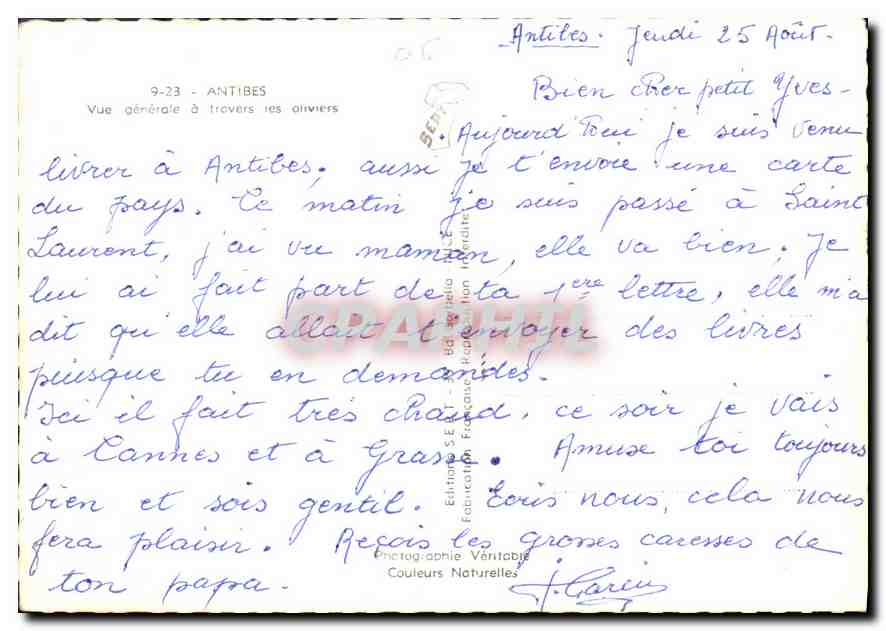 Antibes. Jeudi 25 Août.
9-23 - ANTIBES
Vue générale à travers les oliviers
SEPT
Bien cher petit Yves-
Aujourd'hui je suis venu
livrer à Antibes, aussi je t'envoie une carte
du pays. Ce matin je suis passé à Saint
Laurent, j'ai vu maman, elle va bien. Je
lui ai fait part de ta 1ere lettre, elle m'a
dit qu'elle allait t'envoyer des livres
puisque tu en demandes.
Ici il fait très chaud, ce soir je vais
à Cannes et à Grasse. Amuse toi toujours
bien et sois gentil. Ecris nous, cela nous
fera plaisir. Reçois les grosses caresses de
ton papa.
Editions S.E.P.T. - NICE
Fabrication Française Reproduction Interdite
Photographie Véritable
Couleurs Naturelles
CPARHIL